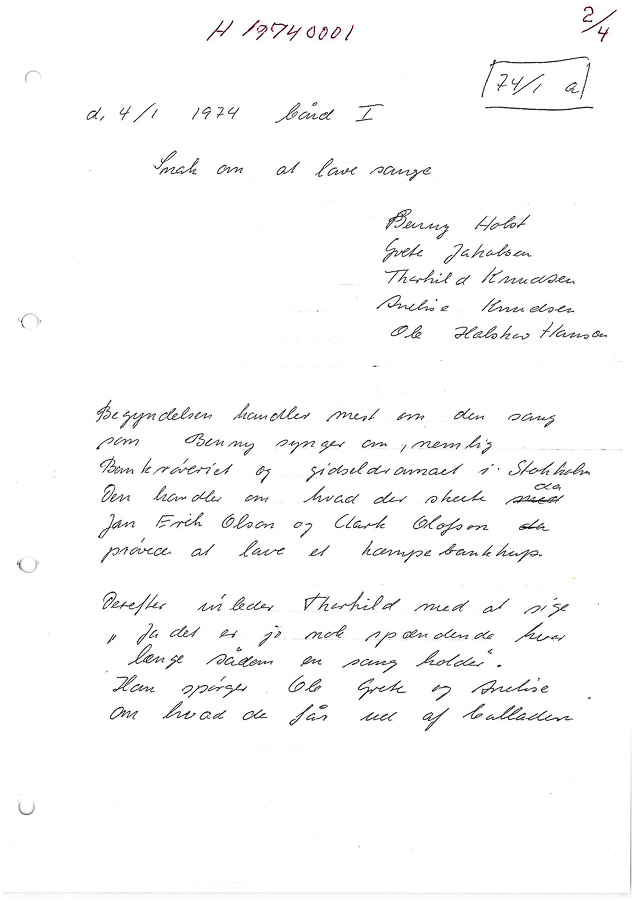 H 19740001
2/4
74/1 a
d. 4/1 1974 bånd I
Snak om at lave sange
Benny Holst
Grete Jakobsen
Thorkild Knudsen
Anelise Knudsen
Ole Halskov Hansen
Begyndelsen handler mest om den sang
som Benny synger om, nemlig
Bankrøveriet og gidseldramaet i Stokholm
Den handler om hvad der skete med da
Jan Erik Olson og Clark Olofson da
prøver at lave et kæmpe bankkup
Derefter inleder Thorkild med at sige
" Ja det er jo nok spændende hvor
længe sådan en sang holder".
Han spørger Ole Grete og Anelise
om hvad de får ud af balladen